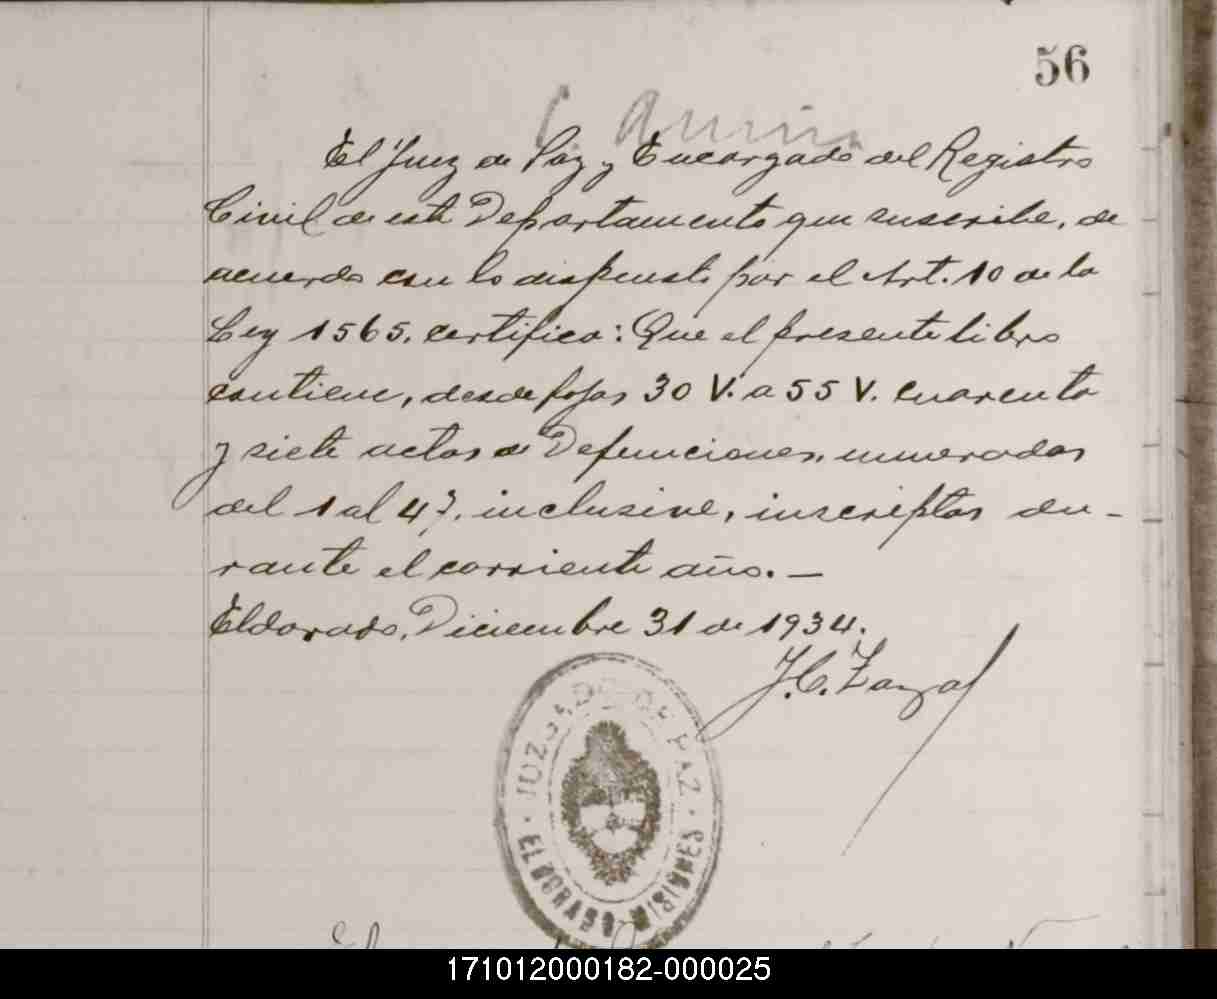 56
El Juez de Paz y Encargado del Registro
Civil de este Departamento que suscribe, de
acuerdo con lo dispuesto por el Art. 10 de la
Ley 1565, certifica: Que el presente libro
contiene, desde fojas 30 V. a 55 V. cuarenta
y siete actas de Defunciones, numeradas
del 1 al 47, inclusive, inscriptas du-
rante el corriente año. —
Eldorado, Diciembre 31 de 1934.
J. C.
JUZGADO DE PAZ
ELDORADO MISIONES
171012000182-000025